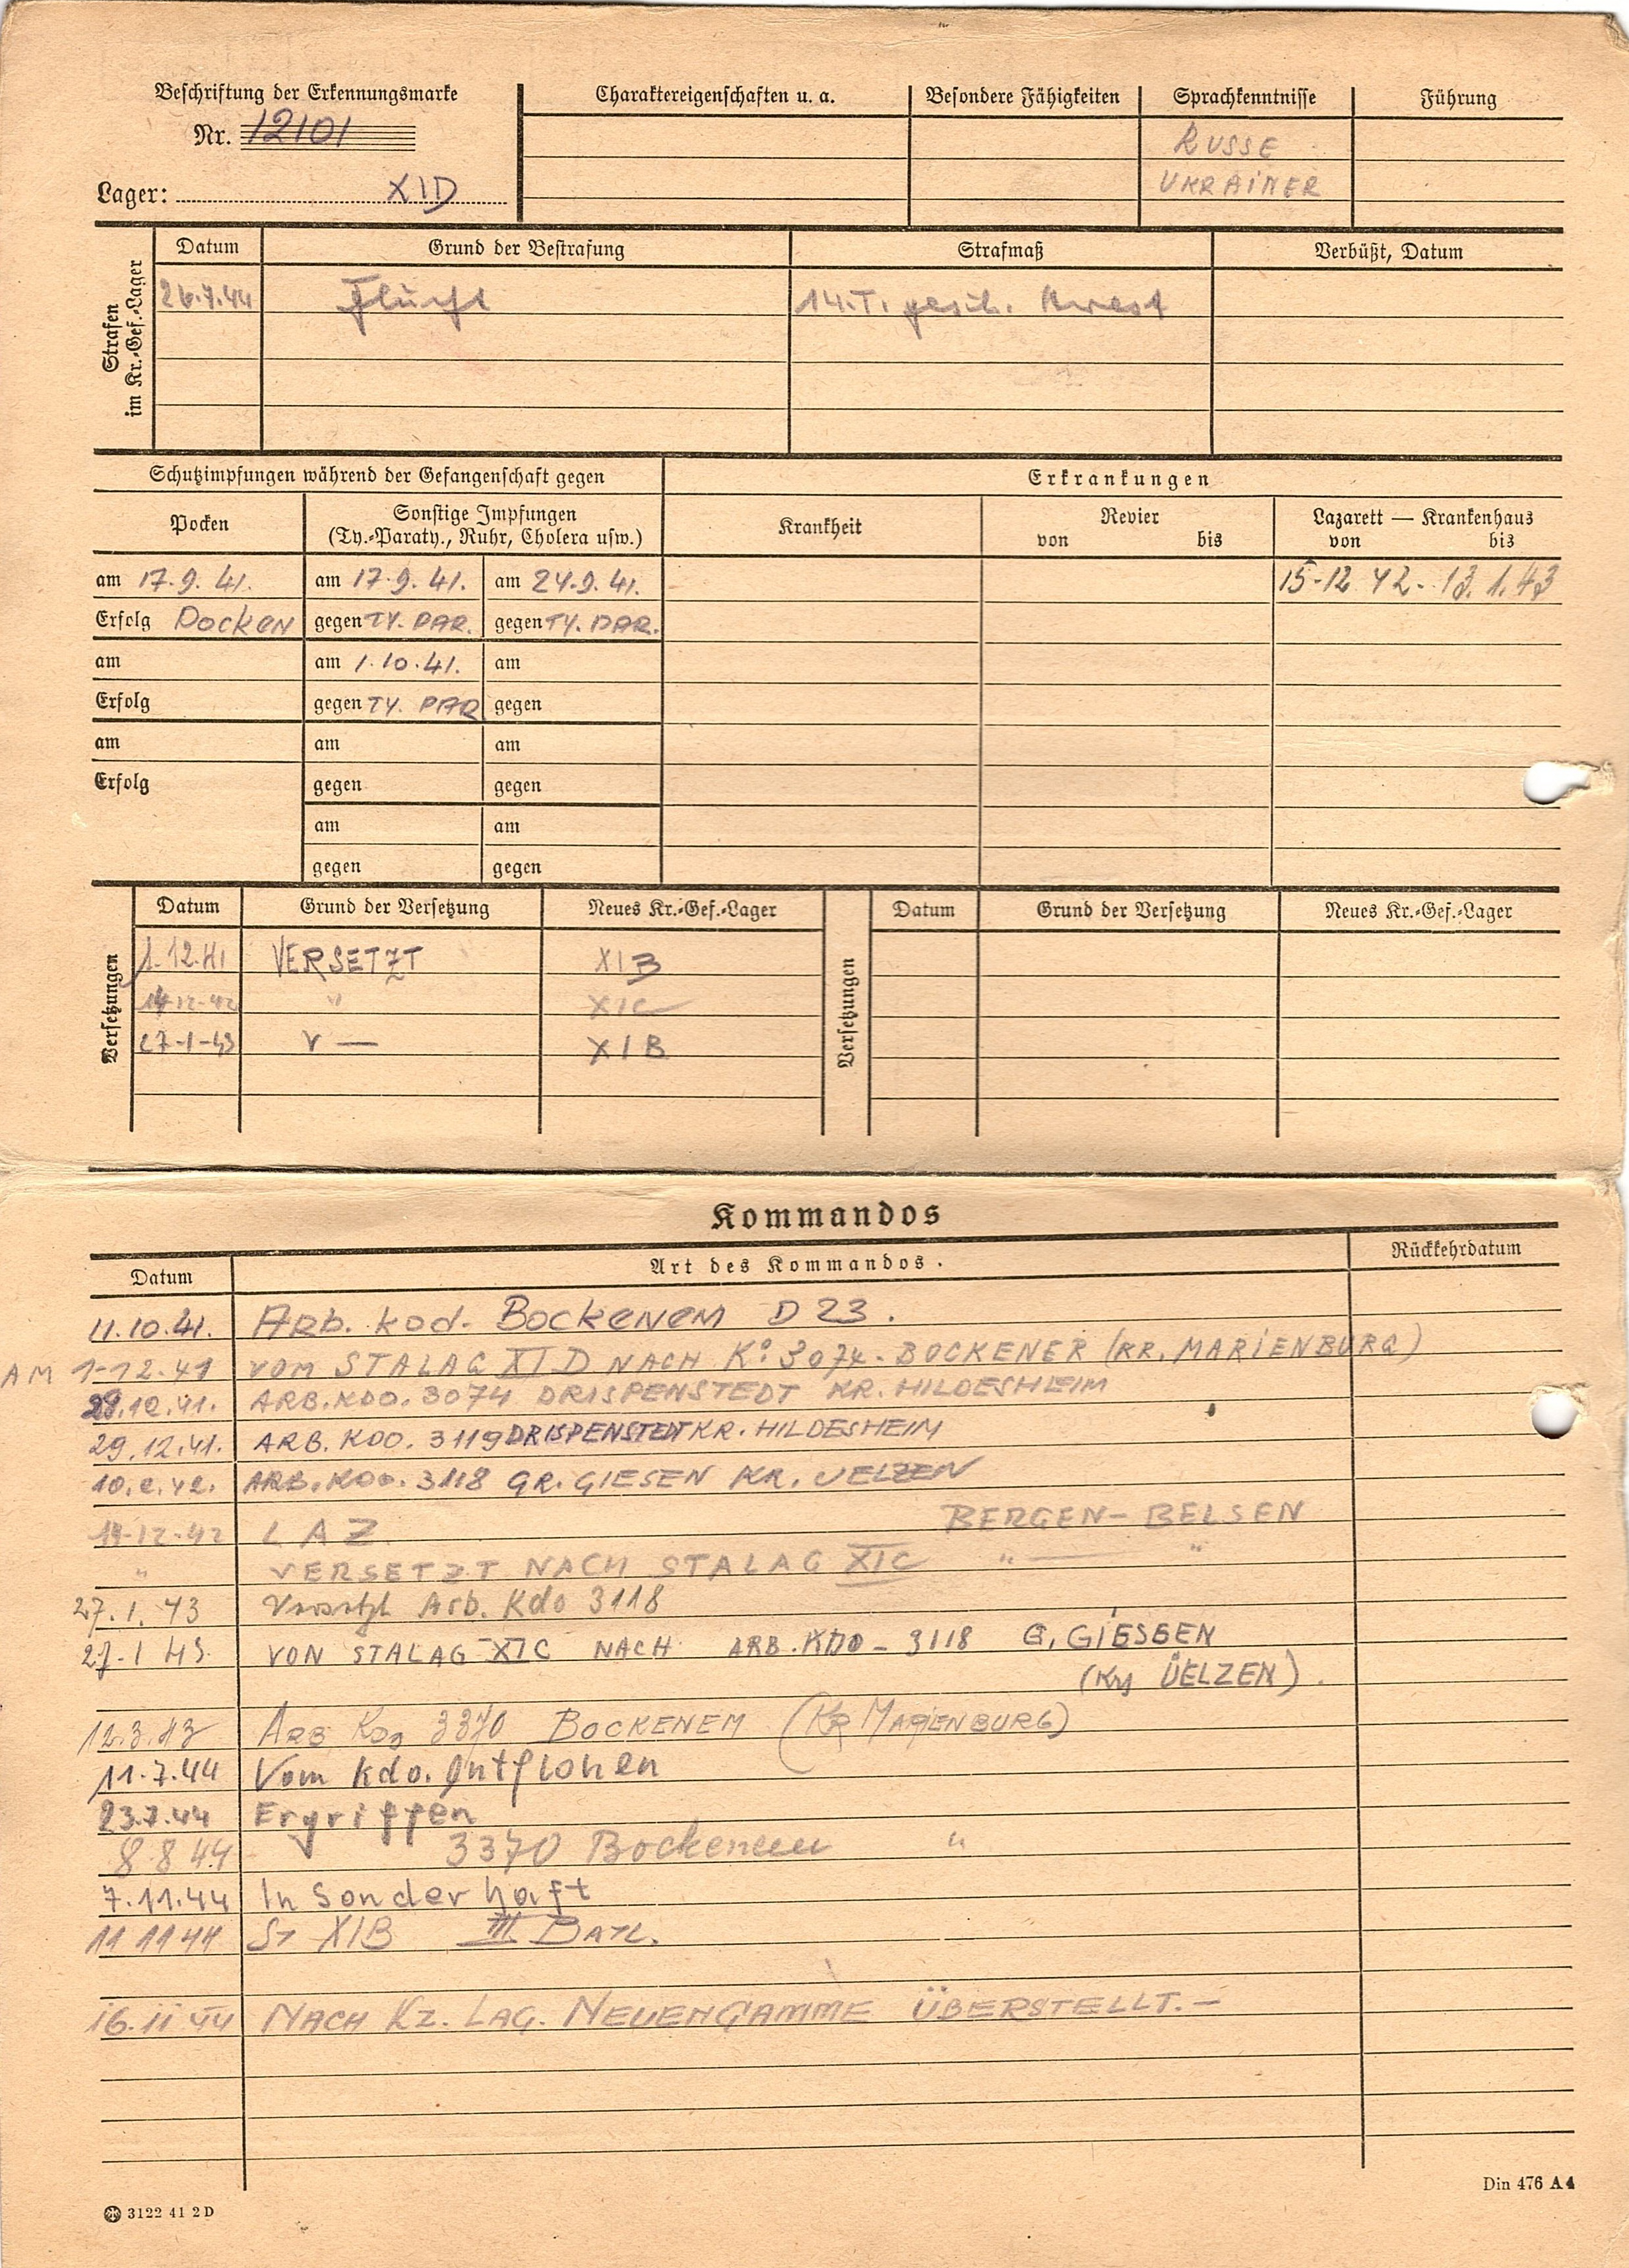 Beschriftung der Erkennungsmarke
Nr. 12101
Lager: XID
Charaktereigenschaften u. a.
Besondere Fähigkeiten
Sprachkenntnisse
RUSSE
UKRAiNER
Führung
Strafen
im Kr.-Gef.-Lager
Datum Grund der Bestrafung Strafmaß Verbüßt, Datum
26.7.44 Flucht 14.T. gesch. Arrest
Schutzimpfungen während der Gefangenschaft gegen
Erkrankungen
Pocken
Sonstige Impfungen
(Ty.-Paraty., Ruhr, Cholera usw.)
Krankheit
Revier
von bis
Lazarett — Krankenhaus
von bis
am 17.9.41. am 17.9.41. am 24.9.41. 15-12 42-13.1.43
Erfolg Pocken gegen TY. PAR. gegen TY. PAR.
am am 1.10.41. am
Erfolg gegen TY. PAR gegen
am am am
Erfolg gegen gegen
am am
gegen gegen
Versetzungen
Datum Grund der Versetzung Neues Kr.-Gef.-Lager
1.12.41 VERSETZT XIB
14-12-42 " XIC
27-1-43 V — XIB
Versetzungen
Datum Grund der Versetzung Neues Kr.-Gef.-Lager
Kommandos
Datum Art des Kommandos. Rückkehrdatum
11.10.41. Arb. kod. Bockenem D 23.
AM 1-12.41 VOM STALAG XI D NACH K° 3074-BOCKENER (KR. MARiENBURG)
29.12.41. ARB.KDO. 3074 DRISPENSTEDT KR. HILDESHEIM
29.12.41. ARB. KDO. 3119 DRISPENSTEDT KR. HILDESHEIM
10.2.42. ARB.KDO. 3118 GR. GIESEN KR. UELZEN
14-12-42 LAZ. BERGEN-BELSEN
" VERSETZT NACH STALAG XIC " — "
27.1.43 Versetzt Arb. Kdo 3118
27.1 43. VON STALAG XIC NACH ARB.KDO-3118 G. GiESSEN
(Krs ÜELZEN).
12.3.43 ARB KDO 3370 BOCKENEM (KR MARIENBURG)
11.7.44 Vom Kdo. Entflohen
23.7.44 Ergriffen
8 8 44 3370 Bockenem "
7.11.44 In Sonderhaft
11 11 44 ST XIB III BATL.
16.11.44 NACH KZ. LAG. NEUENGAMME ÜBERSTELLT.—
3122 41 2 D
Din 476 A 4